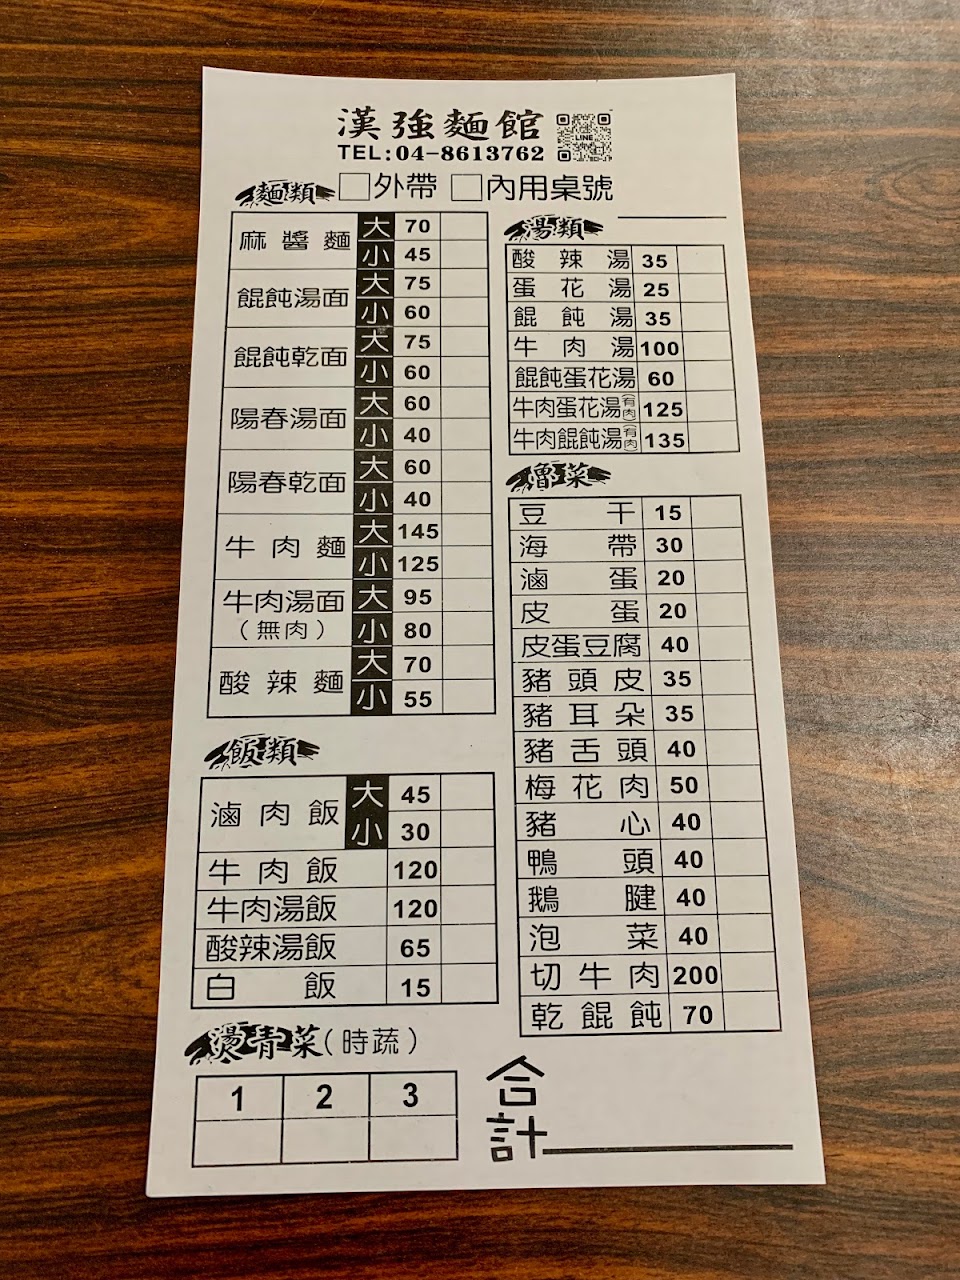 漢強麵館
LINE
TEL:04-8613762
外帶 內用桌號
麵類
麻醬麵 大 70
小 45
餛飩湯面 大 75
小 60
餛飩乾面 大 75
小 60
陽春湯面 大 60
小 40
陽春乾面 大 60
小 40
牛肉麵 大 145
小 125
牛肉湯面 大 95
(無肉) 小 80
酸辣麵 大 70
小 55
飯類
滷肉飯 大 45
小 30
牛肉飯 120
牛肉湯飯 120
酸辣湯飯 65
白飯 15
燙青菜(時蔬)
1 2 3
湯類
酸辣湯 35
蛋花湯 25
餛飩湯 35
牛肉湯 100
餛飩蛋花湯 60
牛肉蛋花湯(有肉) 125
牛肉餛飩湯(有肉) 135
嚕菜
豆干 15
海帶 30
滷蛋 20
皮蛋 20
皮蛋豆腐 40
豬頭皮 35
豬耳朵 35
豬舌頭 40
梅花肉 50
豬心 40
鴨頭 40
鵝腱 40
泡菜 40
切牛肉 200
乾餛飩 70
合計